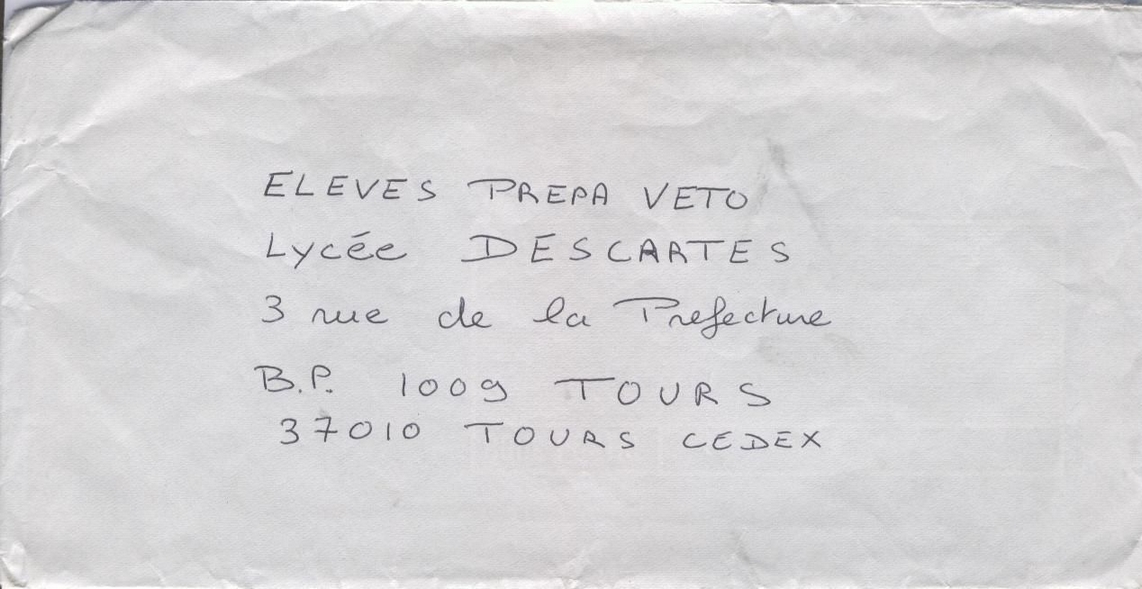 ELEVES PREPA VETO
Lycée DESCARTES
3 rue de la Prefecture
B.P. 1009 TOURS
37010 TOURS CEDEX